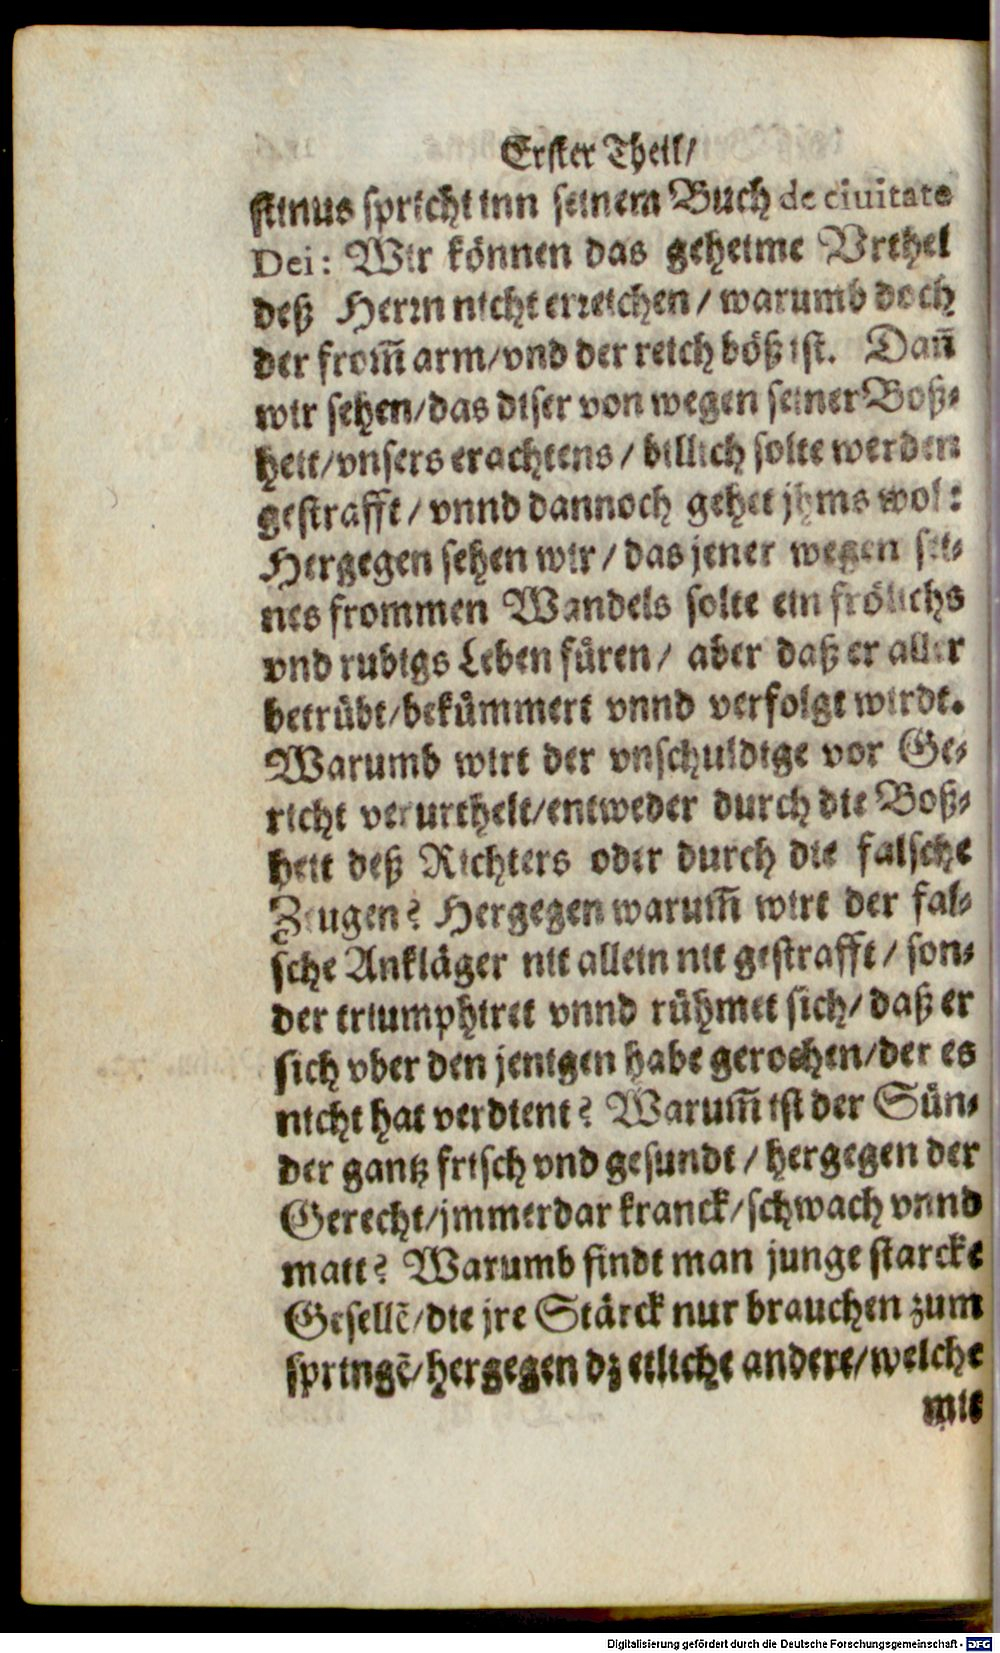 Erster Theil/
stinus spricht inn seinem Buch de ciuitate
Dei: Wir können das geheime Vrthel
deß Herrn nicht erreichen / warumb doch
der from̃ arm/vnd der reich böß ist. Dañ
wir sehen/das diser von wegen seiner Boß-
heit/vnsers erachtens / billich solte werden
gestrafft / vnnd dannoch gehet jhms wol:
Hergegen sehen wir / das jener wegen sei-
nes frommen Wandels solte ein frölichs
vnd rubigs Leben füren / aber daß er aller
betrübt/bekümmert vnnd verfolgt wirdt.
Warumb wirt der vnschuldige vor Ge-
richt verurthelt/entweder durch die Boß-
heit deß Richters oder durch die falsche
Zeugen? Hergegen warum̃ wirt der fal-
sche Ankläger nit allein nit gestrafft / son-
der triumphiret vnnd rühmet sich/ daß er
sich vber den jenigen habe gerochen/der es
nicht hat verdient? Warum̃ ist der Sün-
der gantz frisch vnd gesundt / hergegen der
Gerecht/jmmerdar kranck/schwach vnnd
matt? Warumb findt man junge starcke
Gesellẽ/die jre Stärck nur brauchen zum
springẽ/hergegen dz etliche andere/welche
mit
Digitalisierung gefördert durch die Deutsche Forschungsgemeinschaft - DFG